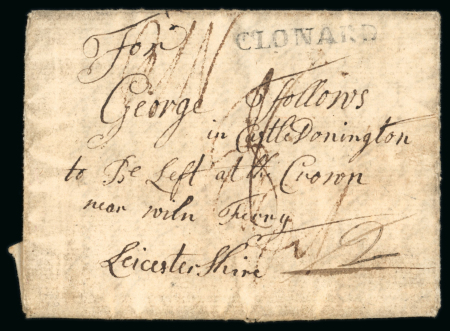 CLONARD
For
George ffollows
in Castle Donington
to Be Left at the Crown
near wiln Ferry
Leicester Shire